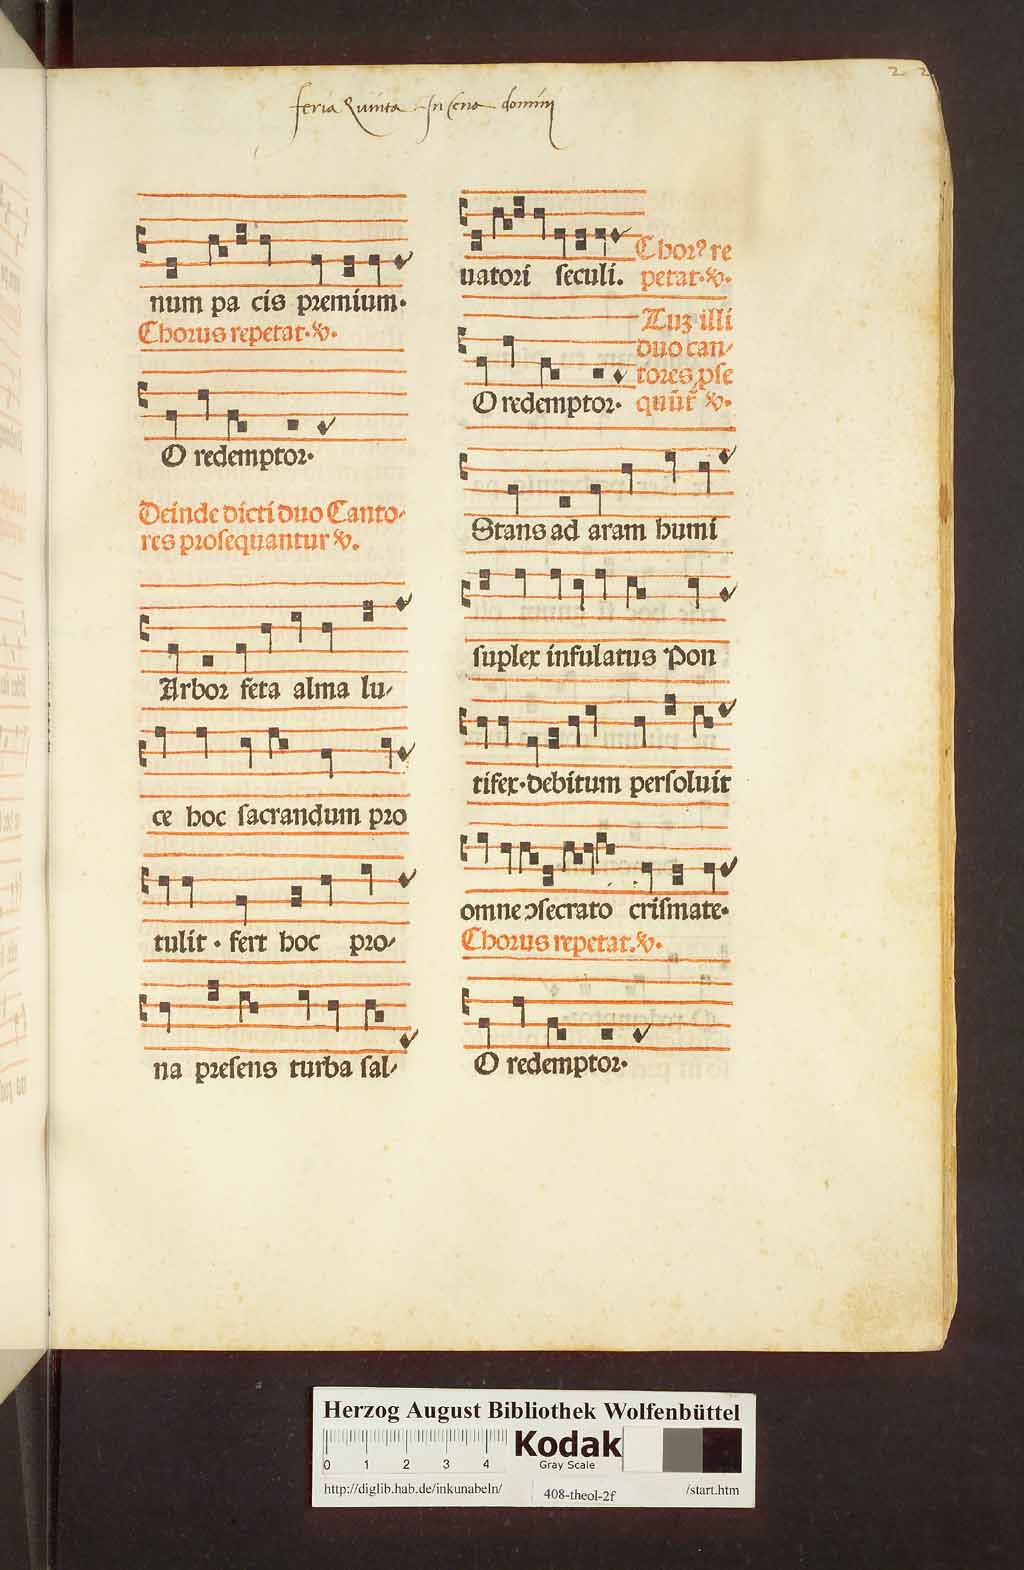 feria Quinta In cena domini
22
num pa cis premium.
Chorus repetat. v.
O redemptor.
Deinde dicti duo Canto-
res prosequantur v.
Arbor feta alma lu-
ce hoc sacrandum pro
tulit. fert hoc pro-
na presens turba sal-
uatori seculi.
Chorꝰ re
petat. v.
O redemptor.
duo can-
tores pse
Stans ad aram humi
suplex infulatus Pon
tifex. debitum persoluit
omne ↄsecrato crismate.
Chorus repetat. v.
O redemptor.
Herzog August Bibliothek Wolfenbüttel
0 1 2 3 4
Kodak
Gray Scale
http://diglib.hab.de/inkunabeln/
408-theol-2f
/start.htm